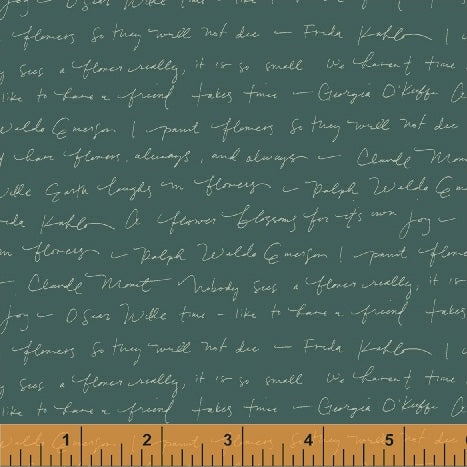 Joy ~ Oscar Wilde time - like to have a friend takes
flowers so they will not die ~ Frida Kahlo I
y sees a flower really, it is so small we haven't time
like to have a friend takes time ~ Georgia O'Keeffe
Waldo Emerson I paint flowers so they will not die
have flowers, always, and always ~ Claude Mon
Wilde Earth laughs in flowers ~ Ralph Waldo Em
da Kahlo A flower blossoms for its own joy ~
in flowers ~ Ralph Waldo Emerson I paint flowe
~ Claude Monet Nobody sees a flower really, it is
Joy ~ Oscar Wilde time - like to have a friend takes
flowers so they will not die ~ Frida Kahlo I
y sees a flower really, it is so small we haven't time
like to have a friend takes time ~ Georgia O'Keeffe
Waldo Emerson I paint flowers so they will not die
1 2 3 4 5